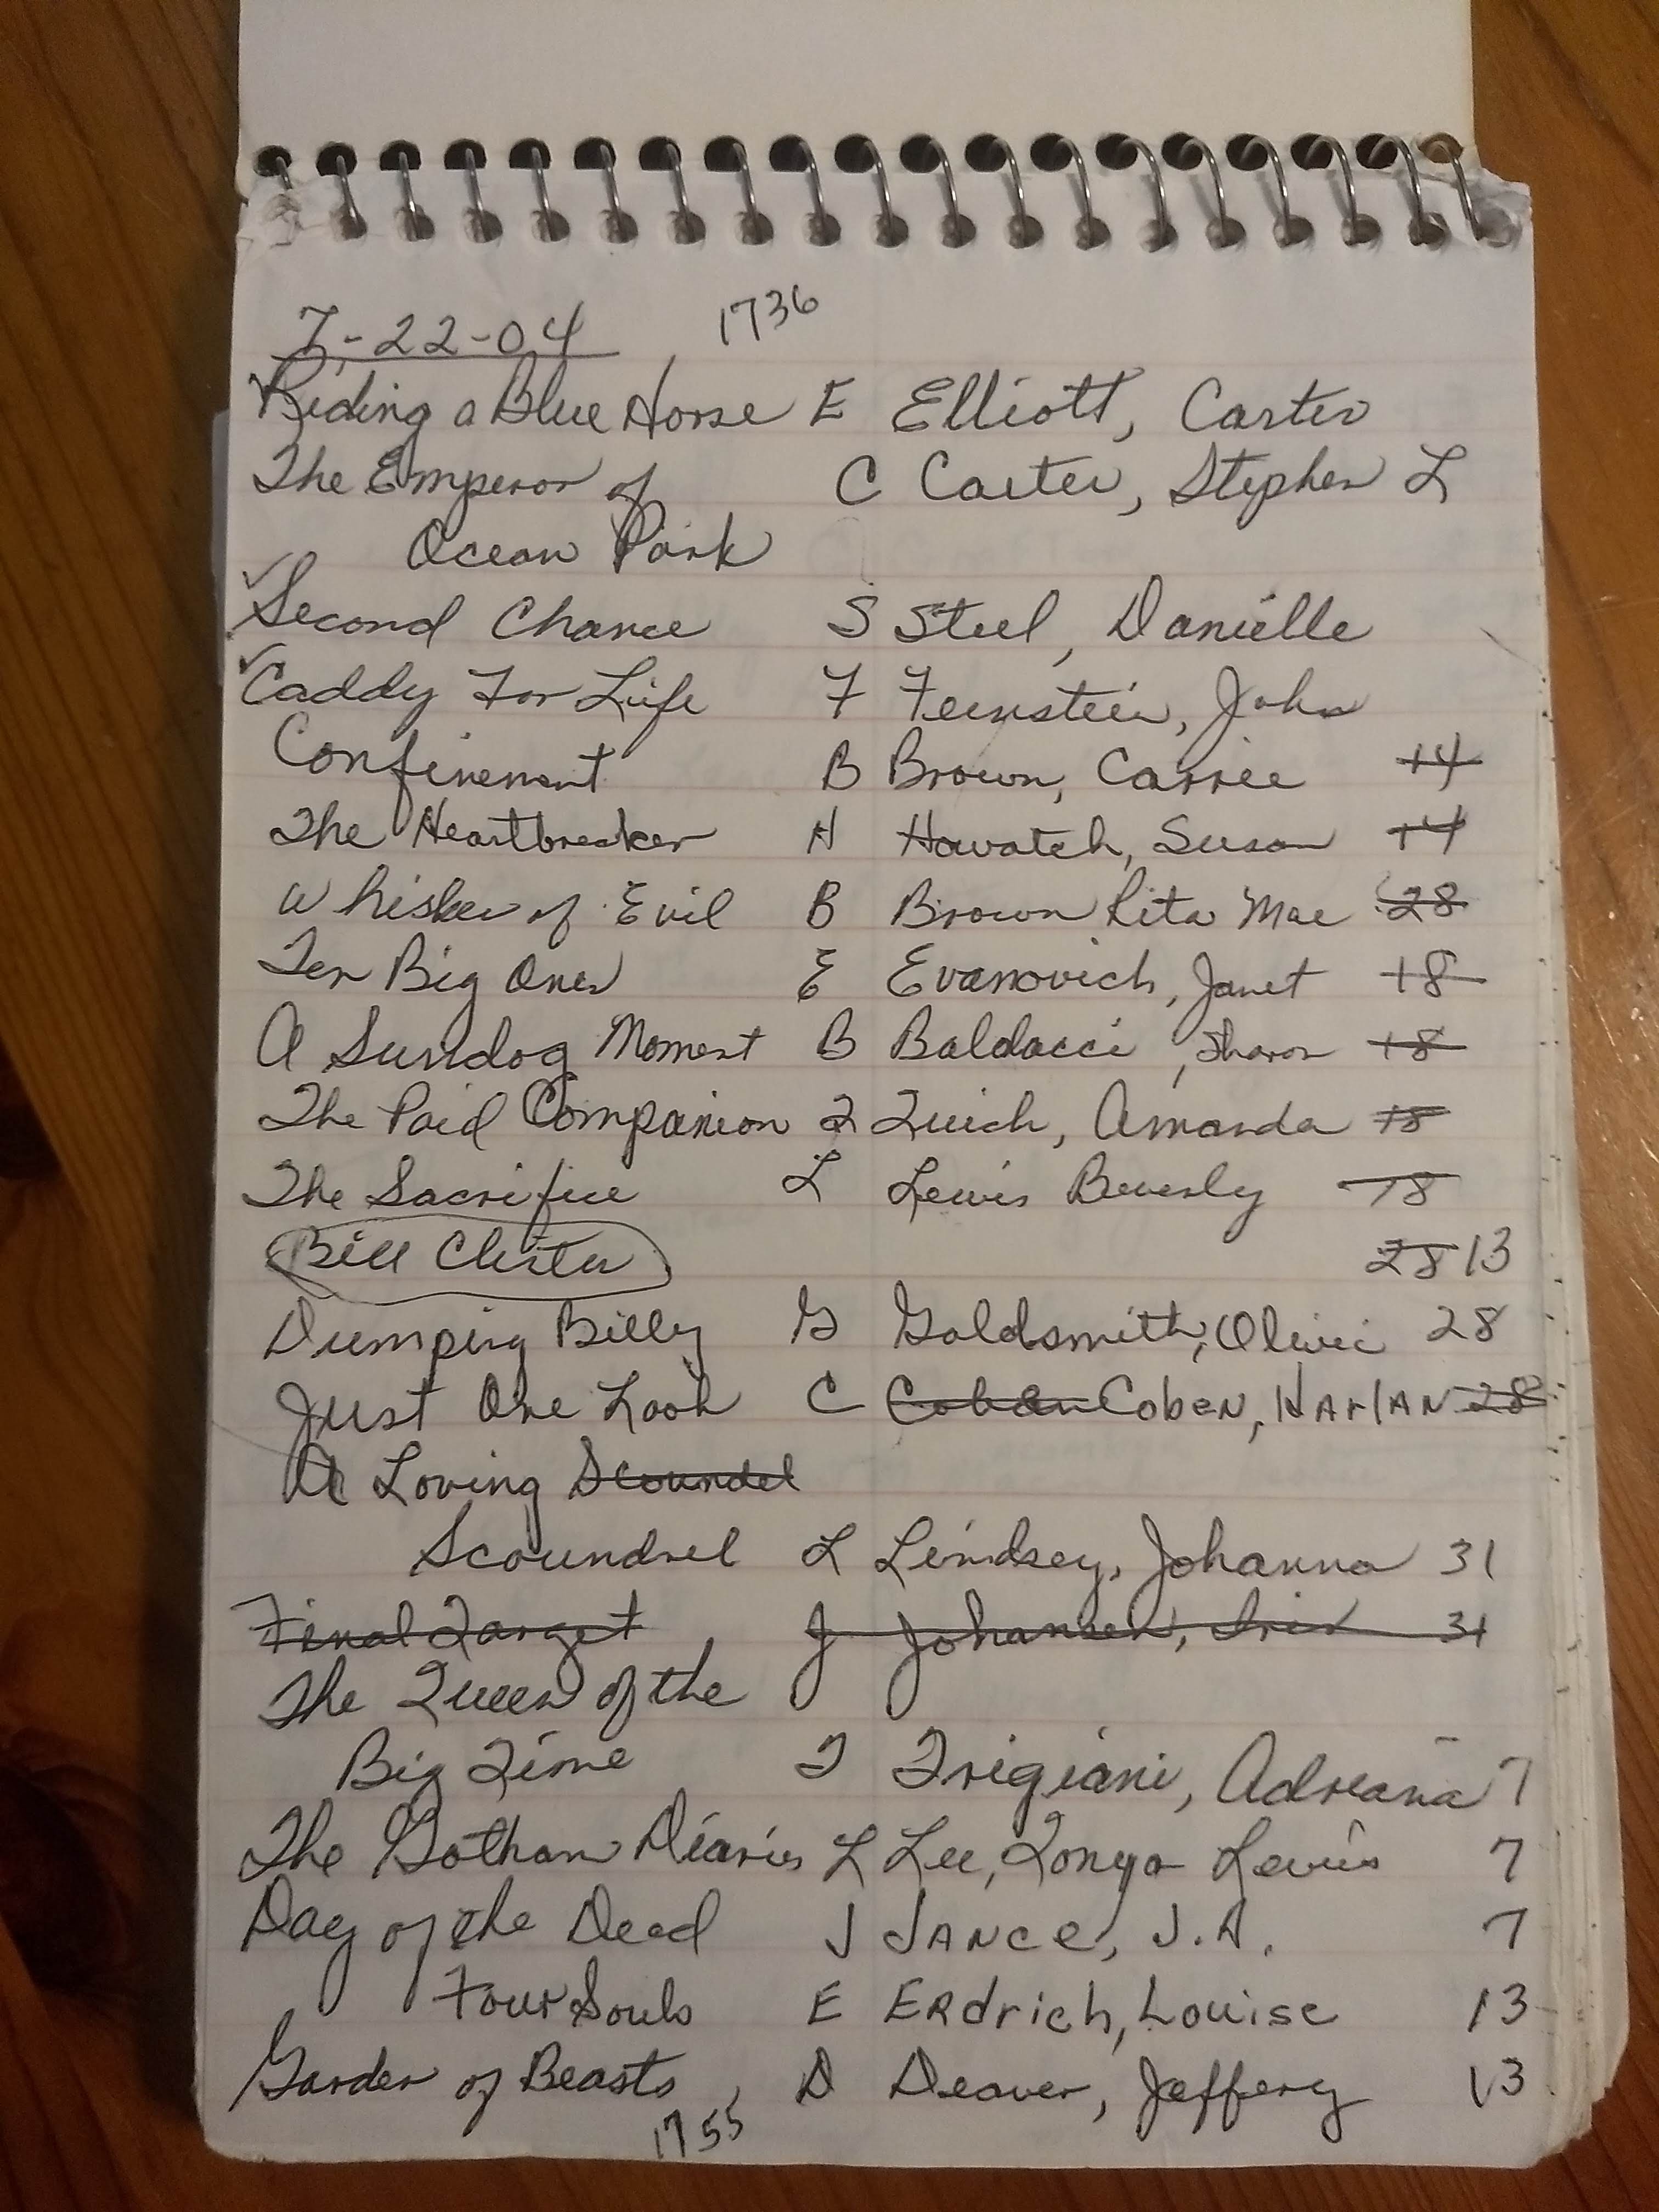 7-22-04 1736
Riding a Blue Horse E Elliott, Carter
The Emperor of C Carter, Stephen L
Ocean Park
✓Second Chance S Steel, Danielle
✓Caddy For Life F Feinstein, John
Confinement B Brown, Carrie +4
The Heartbreaker H Howatch, Susan +4
Whisker of Evil B Brown Rita Mae 28
Ten Big Ones E Evanovich, Janet +8
A Sundog Moment B Baldacci, Sharon +8
The Paid Companion Q Quick, Amanda +8
The Sacrifice L Lewis Beverly 78
Bill Clinton 28 13
Dumping Billy G Goldsmith, Olivia 28
Just One Look C Coban Coben, HArlAN 28
A Loving Scoundel
Scoundrel L Lindsey, Johanna 31
Final Target J Johansen, Iris 31
The Queen of the
Big Time T Trigiani, Adriana 7
The Gotham Diaries L Lee, Tonya Lewis 7
Day of the Dead J JANce, J.A. 7
Four Souls E ERdrich, Louise 13
Garden of Beasts, D Deaver, Jeffery 13
1755